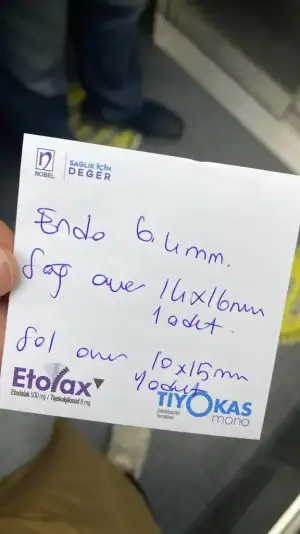 NOBEL
SAĞLIK İÇİN
DEĞER
Endo 6.4mm.
Sağ over 14x16mm
1 adet.
Sol over 10x15mm
1 adet
Etorax
Etodolak 500 mg / Tiyokolşikosid 8 mg
TİYOKAS
mono